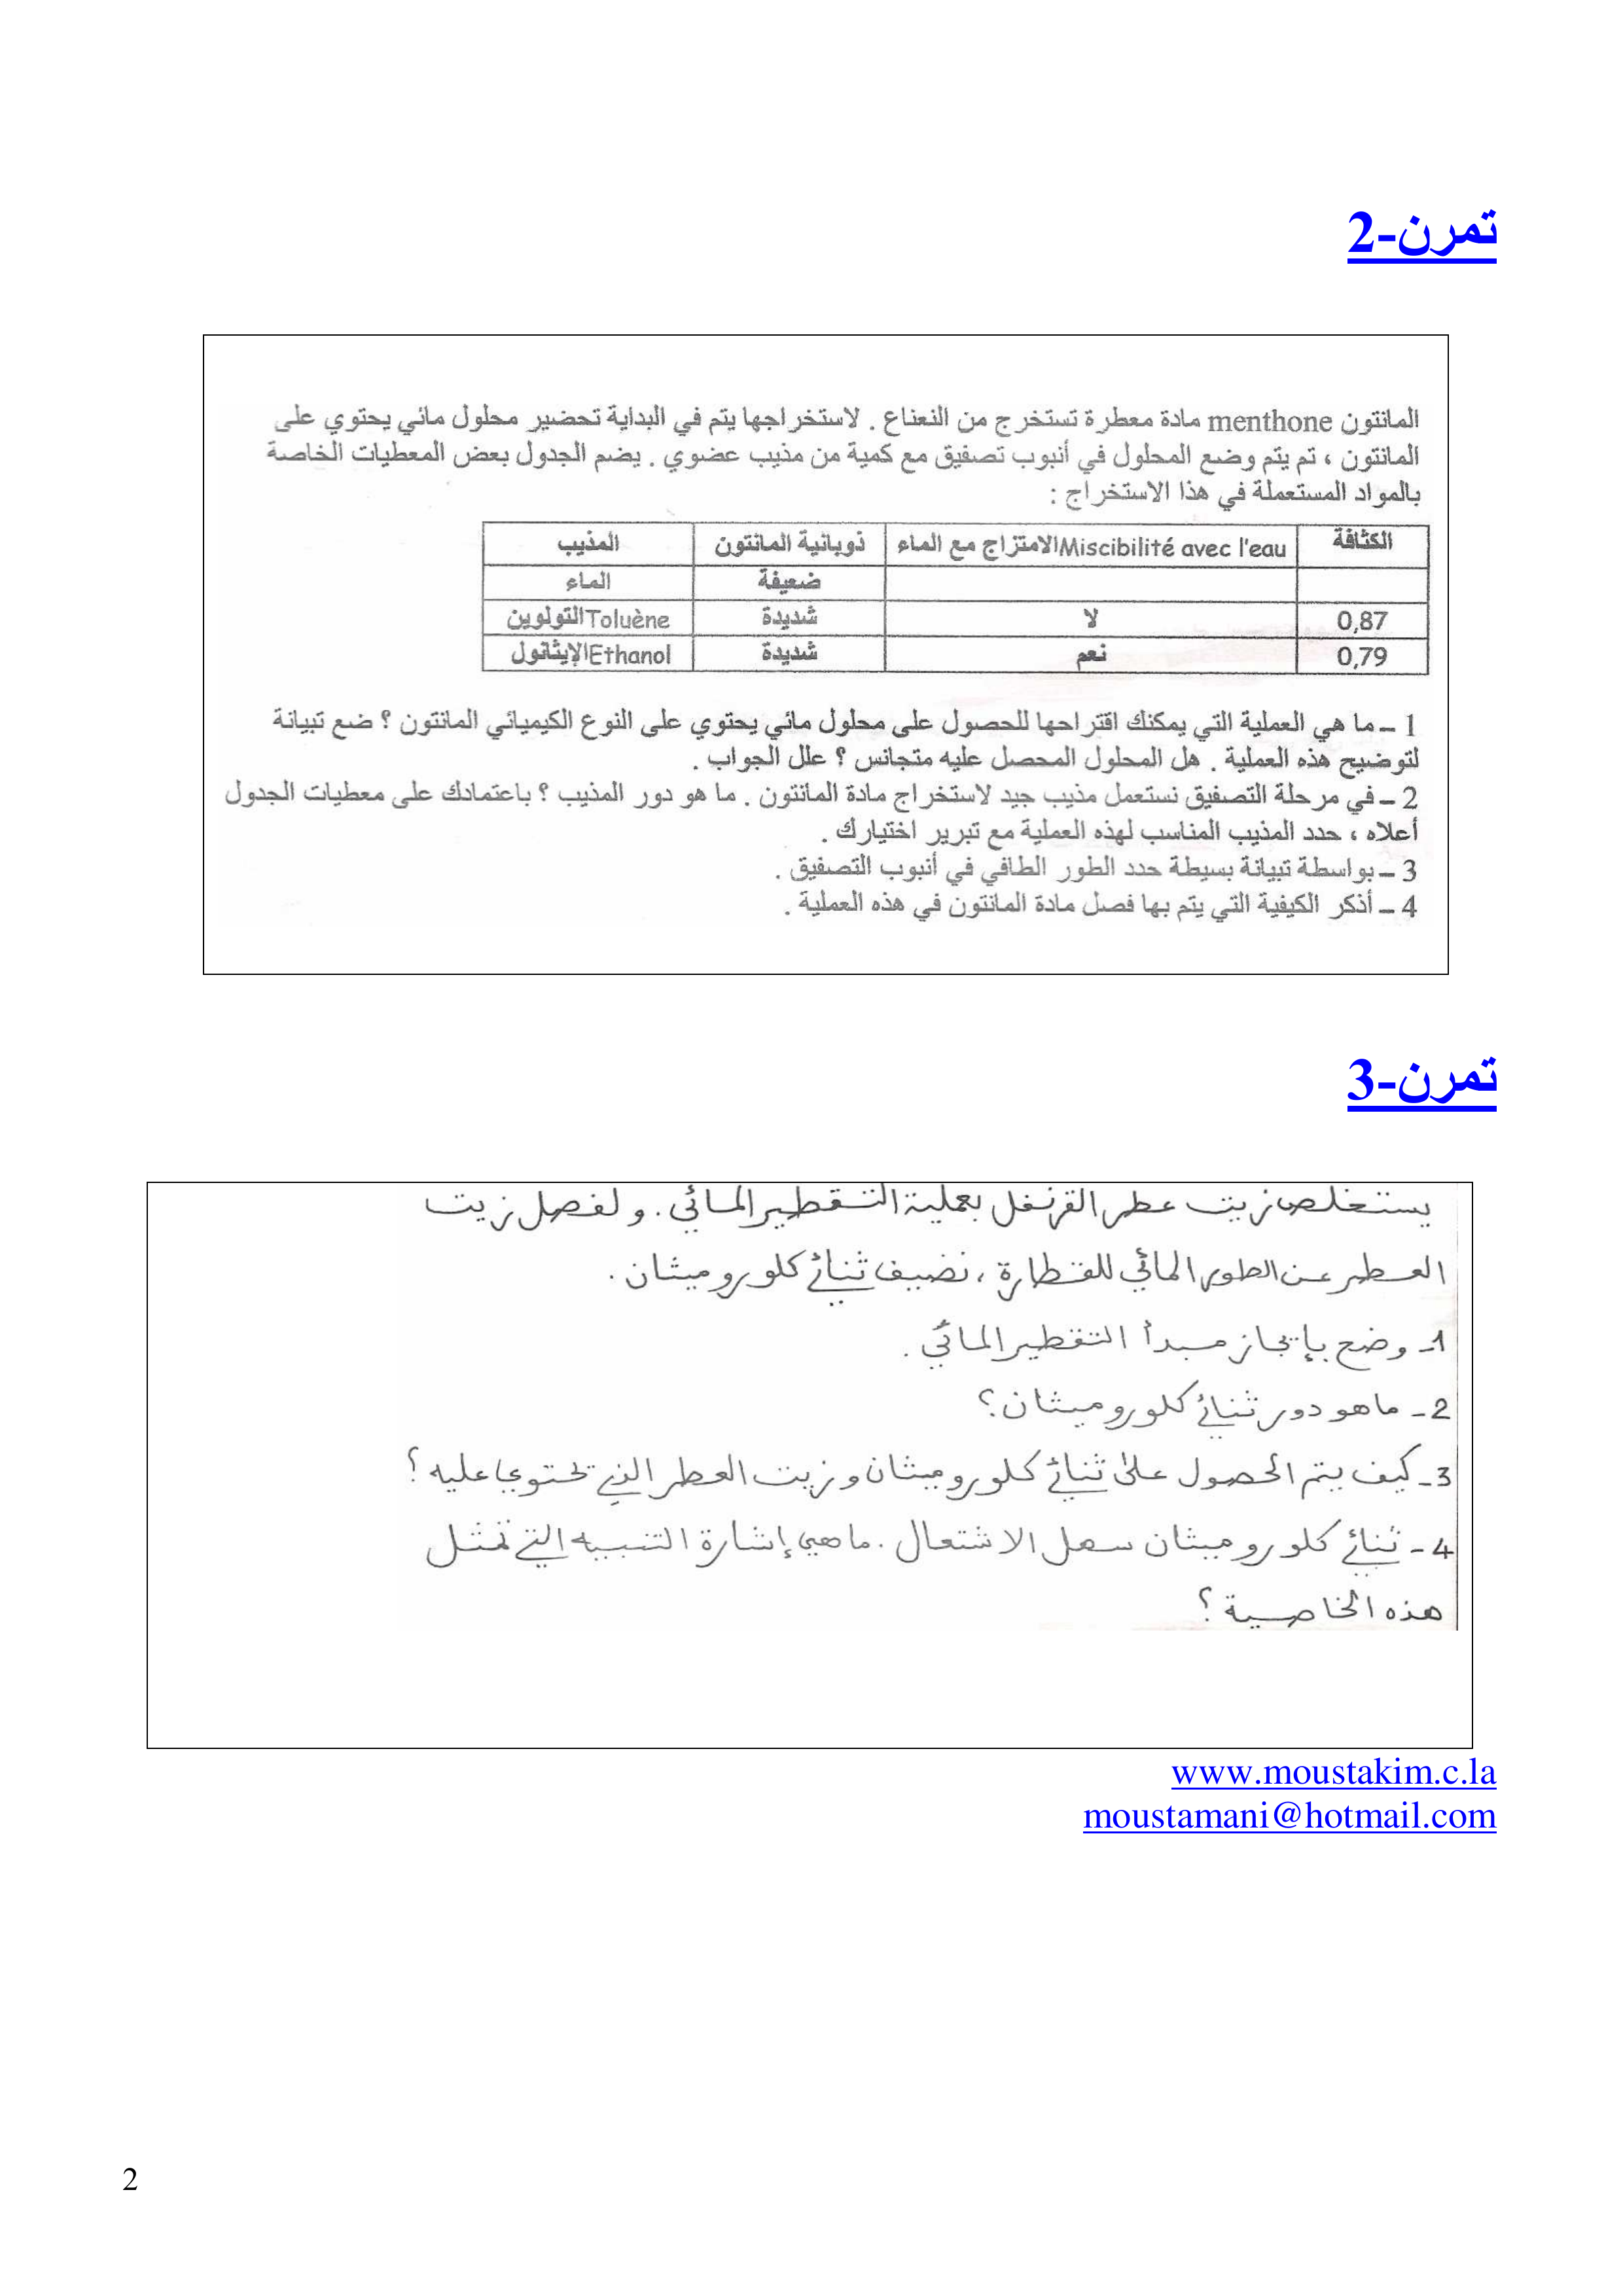 تمرن-2
المانتون menthone مادة معطرة تستخرج من النعناع . لاستخراجها يتم في البداية تحضير محلول مائي يحتوي على
المانتون ، تم يتم وضع المحلول في أنبوب تصفيق مع كمية من مذيب عضوي . يضم الجدول بعض المعطيات الخاصة
بالمواد المستعملة في هذا الاستخراج :
الكثافة Miscibilité avec l'eauالامتزاج مع الماء ذوبانية المانتون المذيب
ضعيفة الماء
0,87 لا شديدة Toluèneالتولوين
0,79 نعم شديدة Ethanolالإيثانول
1 – ما هي العملية التي يمكنك اقتراحها للحصول على محلول مائي يحتوي على النوع الكيميائي المانتون ؟ ضع تبيانة
لتوضيح هذه العملية . هل المحلول المحصل عليه متجانس ؟ علل الجواب .
2 – في مرحلة التصفيق نستعمل مذيب جيد لاستخراج مادة المانتون . ما هو دور المذيب ؟ باعتمادك على معطيات الجدول
أعلاه ، حدد المذيب المناسب لهذه العملية مع تبرير اختيارك .
3 – بواسطة تبيانة بسيطة حدد الطور الطافي في أنبوب التصفيق .
4 – أذكر الكيفية التي يتم بها فصل مادة المانتون في هذه العملية .
تمرن-3
يستخلص زيت عطر القرنفل بعملية التقطير المائي . و لفصل زيت
العطر عن الطور المائي للقطارة ، نضيف ثنائي كلورو ميثان .
1- وضح بإيجاز مبدأ التقطير المائي .
2- ما هو دور ثنائي كلورو ميثان ؟
3- كيف يتم الحصول على ثنائي كلورو ميثان و زيت العطر الذي تحتوي عليه ؟
4- ثنائي كلورو ميثان سهل الاشتعال . ما هي إشارة التنبيه التي تمثل
هذه الخاصية ؟
www.moustakim.c.la
moustamani@hotmail.com
2